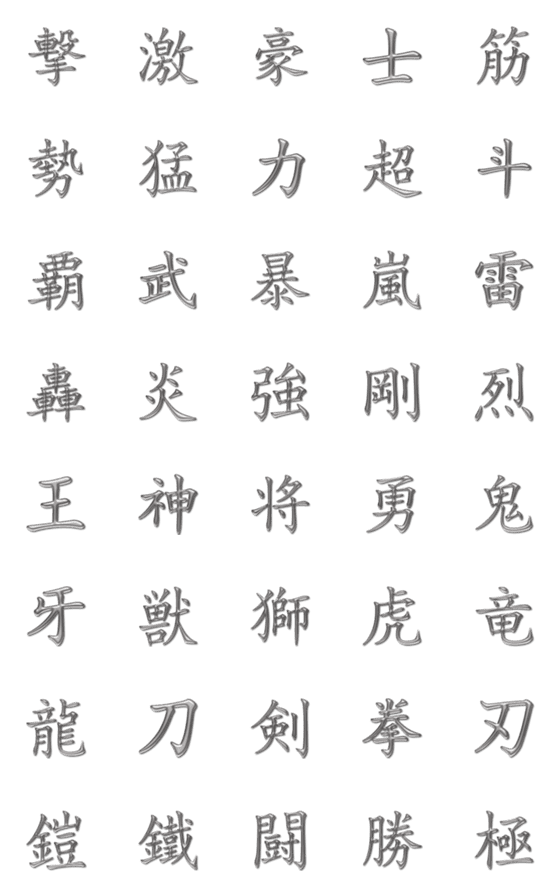 撃 激 豪 士 筋
勢 猛 力 超 斗
覇 武 暴 嵐 雷
轟 炎 強 剛 烈
王 神 将 勇 鬼
牙 獣 獅 虎 竜
龍 刀 剣 拳 刃
鎧 鐵 闘 勝 極